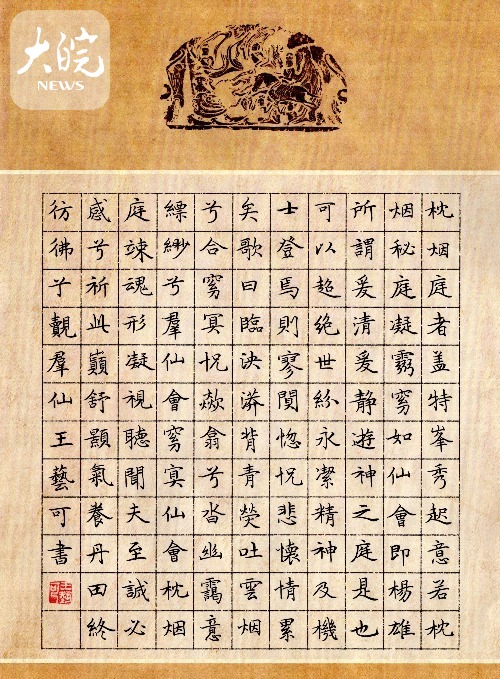 大皖
NEWS
枕烟庭者盖特峯秀起意若枕
烟秘庭凝窅如仙會即楊雄
所謂爰清爰静遊神之庭是也
可以超絶世紛永潔精神及機
士登焉則寥闃惚怳悲懷情累
矣歌曰臨泱漭背青熒吐雲烟
兮合窅冥怳欻翕兮沓幽靄意
縹緲兮羣仙會窅冥仙會枕烟
庭竦魂形凝視聽聞夫至誠必
感兮祈此巔舒顥氣養丹田終
彷彿子覿羣仙王藝可書